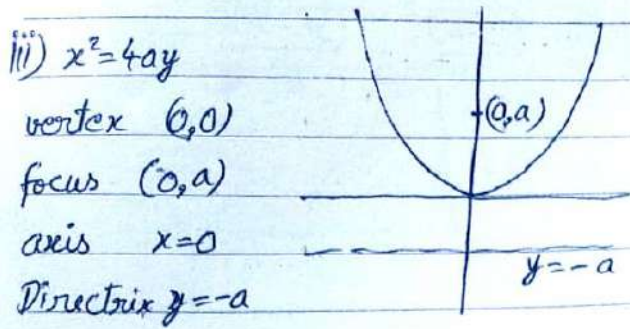 iii) x²=4ay
vertex (0,0)
focus (0,a)
axis x=0
Directrix y=-a
(0,a)
y=-a